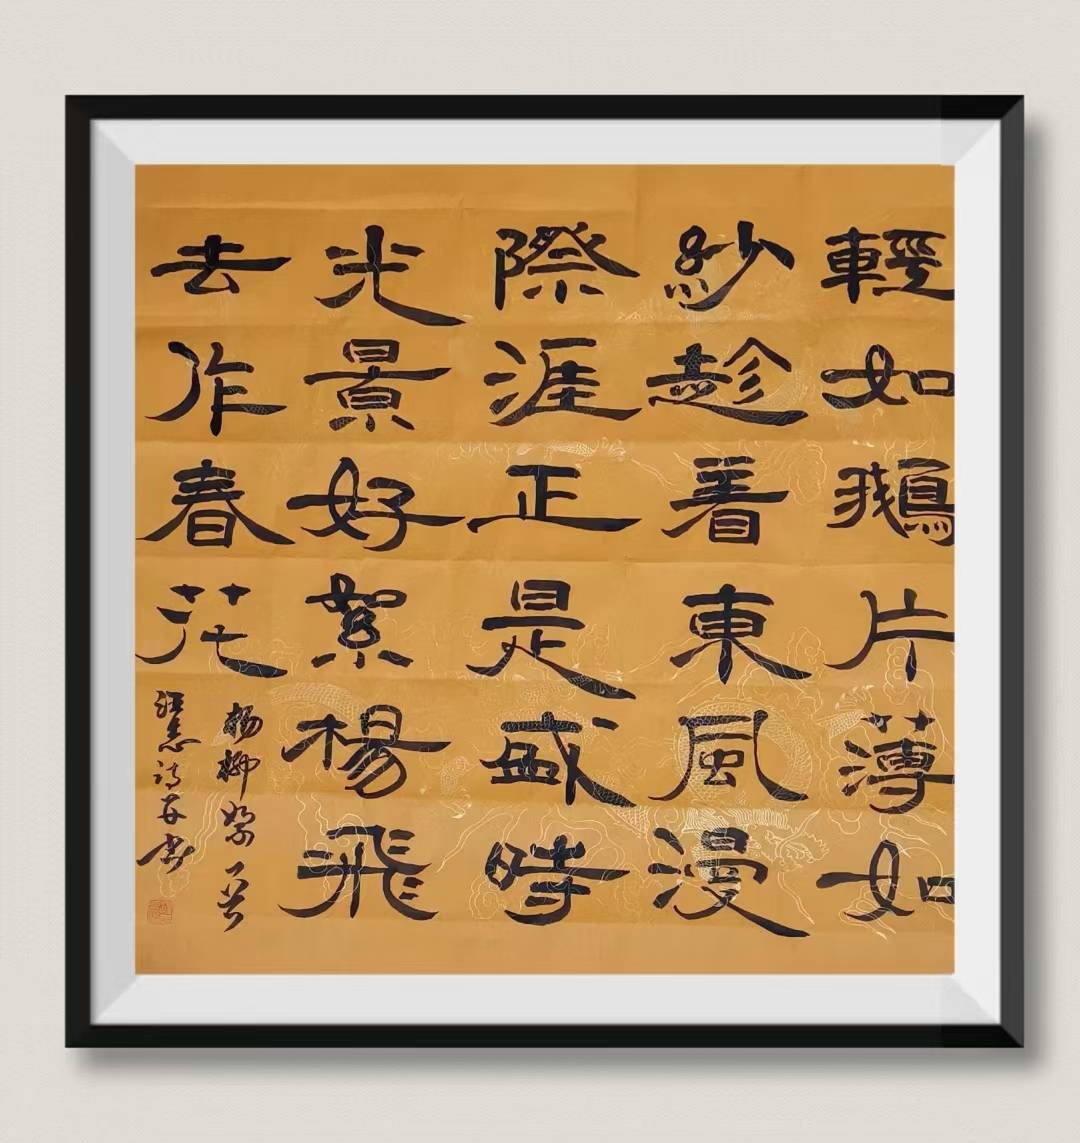 輕如鵝片薄如
紗趁着東風漫
際涯正是盛時
光景好絮楊飛
去作春花
楊柳絮一首
诗并书